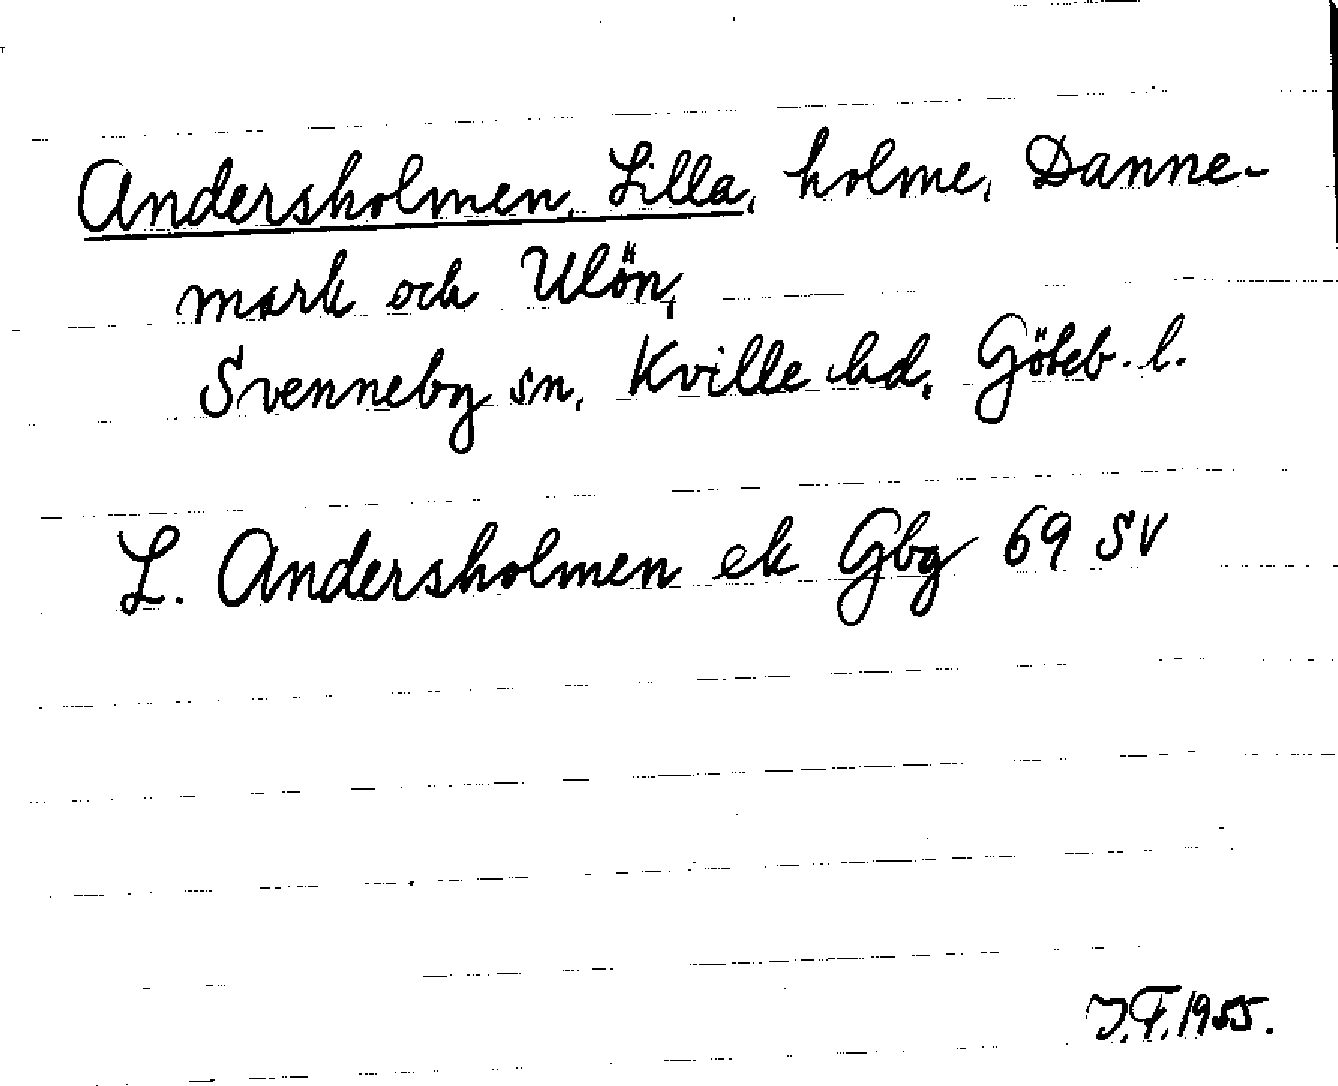 Andersholmen, Lilla, holme, Danne-
mark och Ulön,
Svenneby sn, Kville hd, Göteb. l.
L. Andersholmen ek Gbg 69 SV
J.F. 1955.